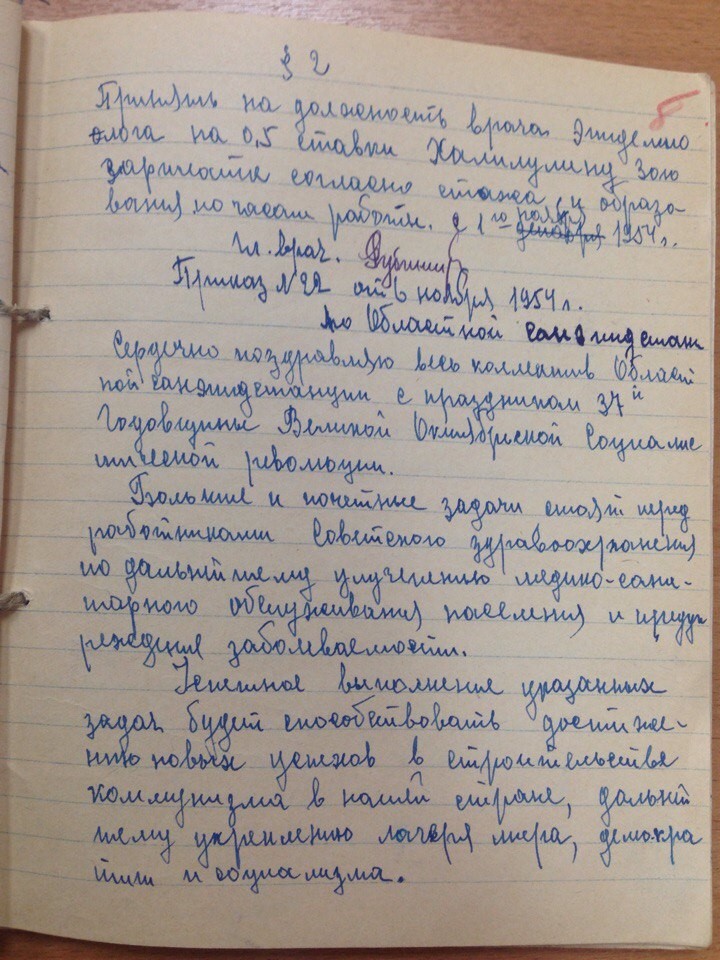 § 2
5
Принять на должность врача Эпидемио
лога на 0,5 ставки Халилулину Зою
зарплата согласно стажа, и образо
вания, по часам работы. с 1го ноября декабря 1954 г.
Гл. врач.
Приказ № 22 от 6 ноября 1954 г.
по Областной санэпидстан
Сердечно поздравляю весь коллектив Област
ной санэпидстанции с праздником 37й
Годовщины Великой Октябрьской Социалис
тической революции.
Большие и почетные задачи стоят перед
работниками Советского здравоохранения
по дальнейшему улучшению медико-сани-
тарного обслуживания населения и предуп
реждения заболеваемости.
Успешное выполнение указанных
задач будет способствовать достиже-
нию новых успехов в строительстве
коммунизма в нашей стране, дальней
шему укреплению лагеря мира, демокра
тии и социализма.